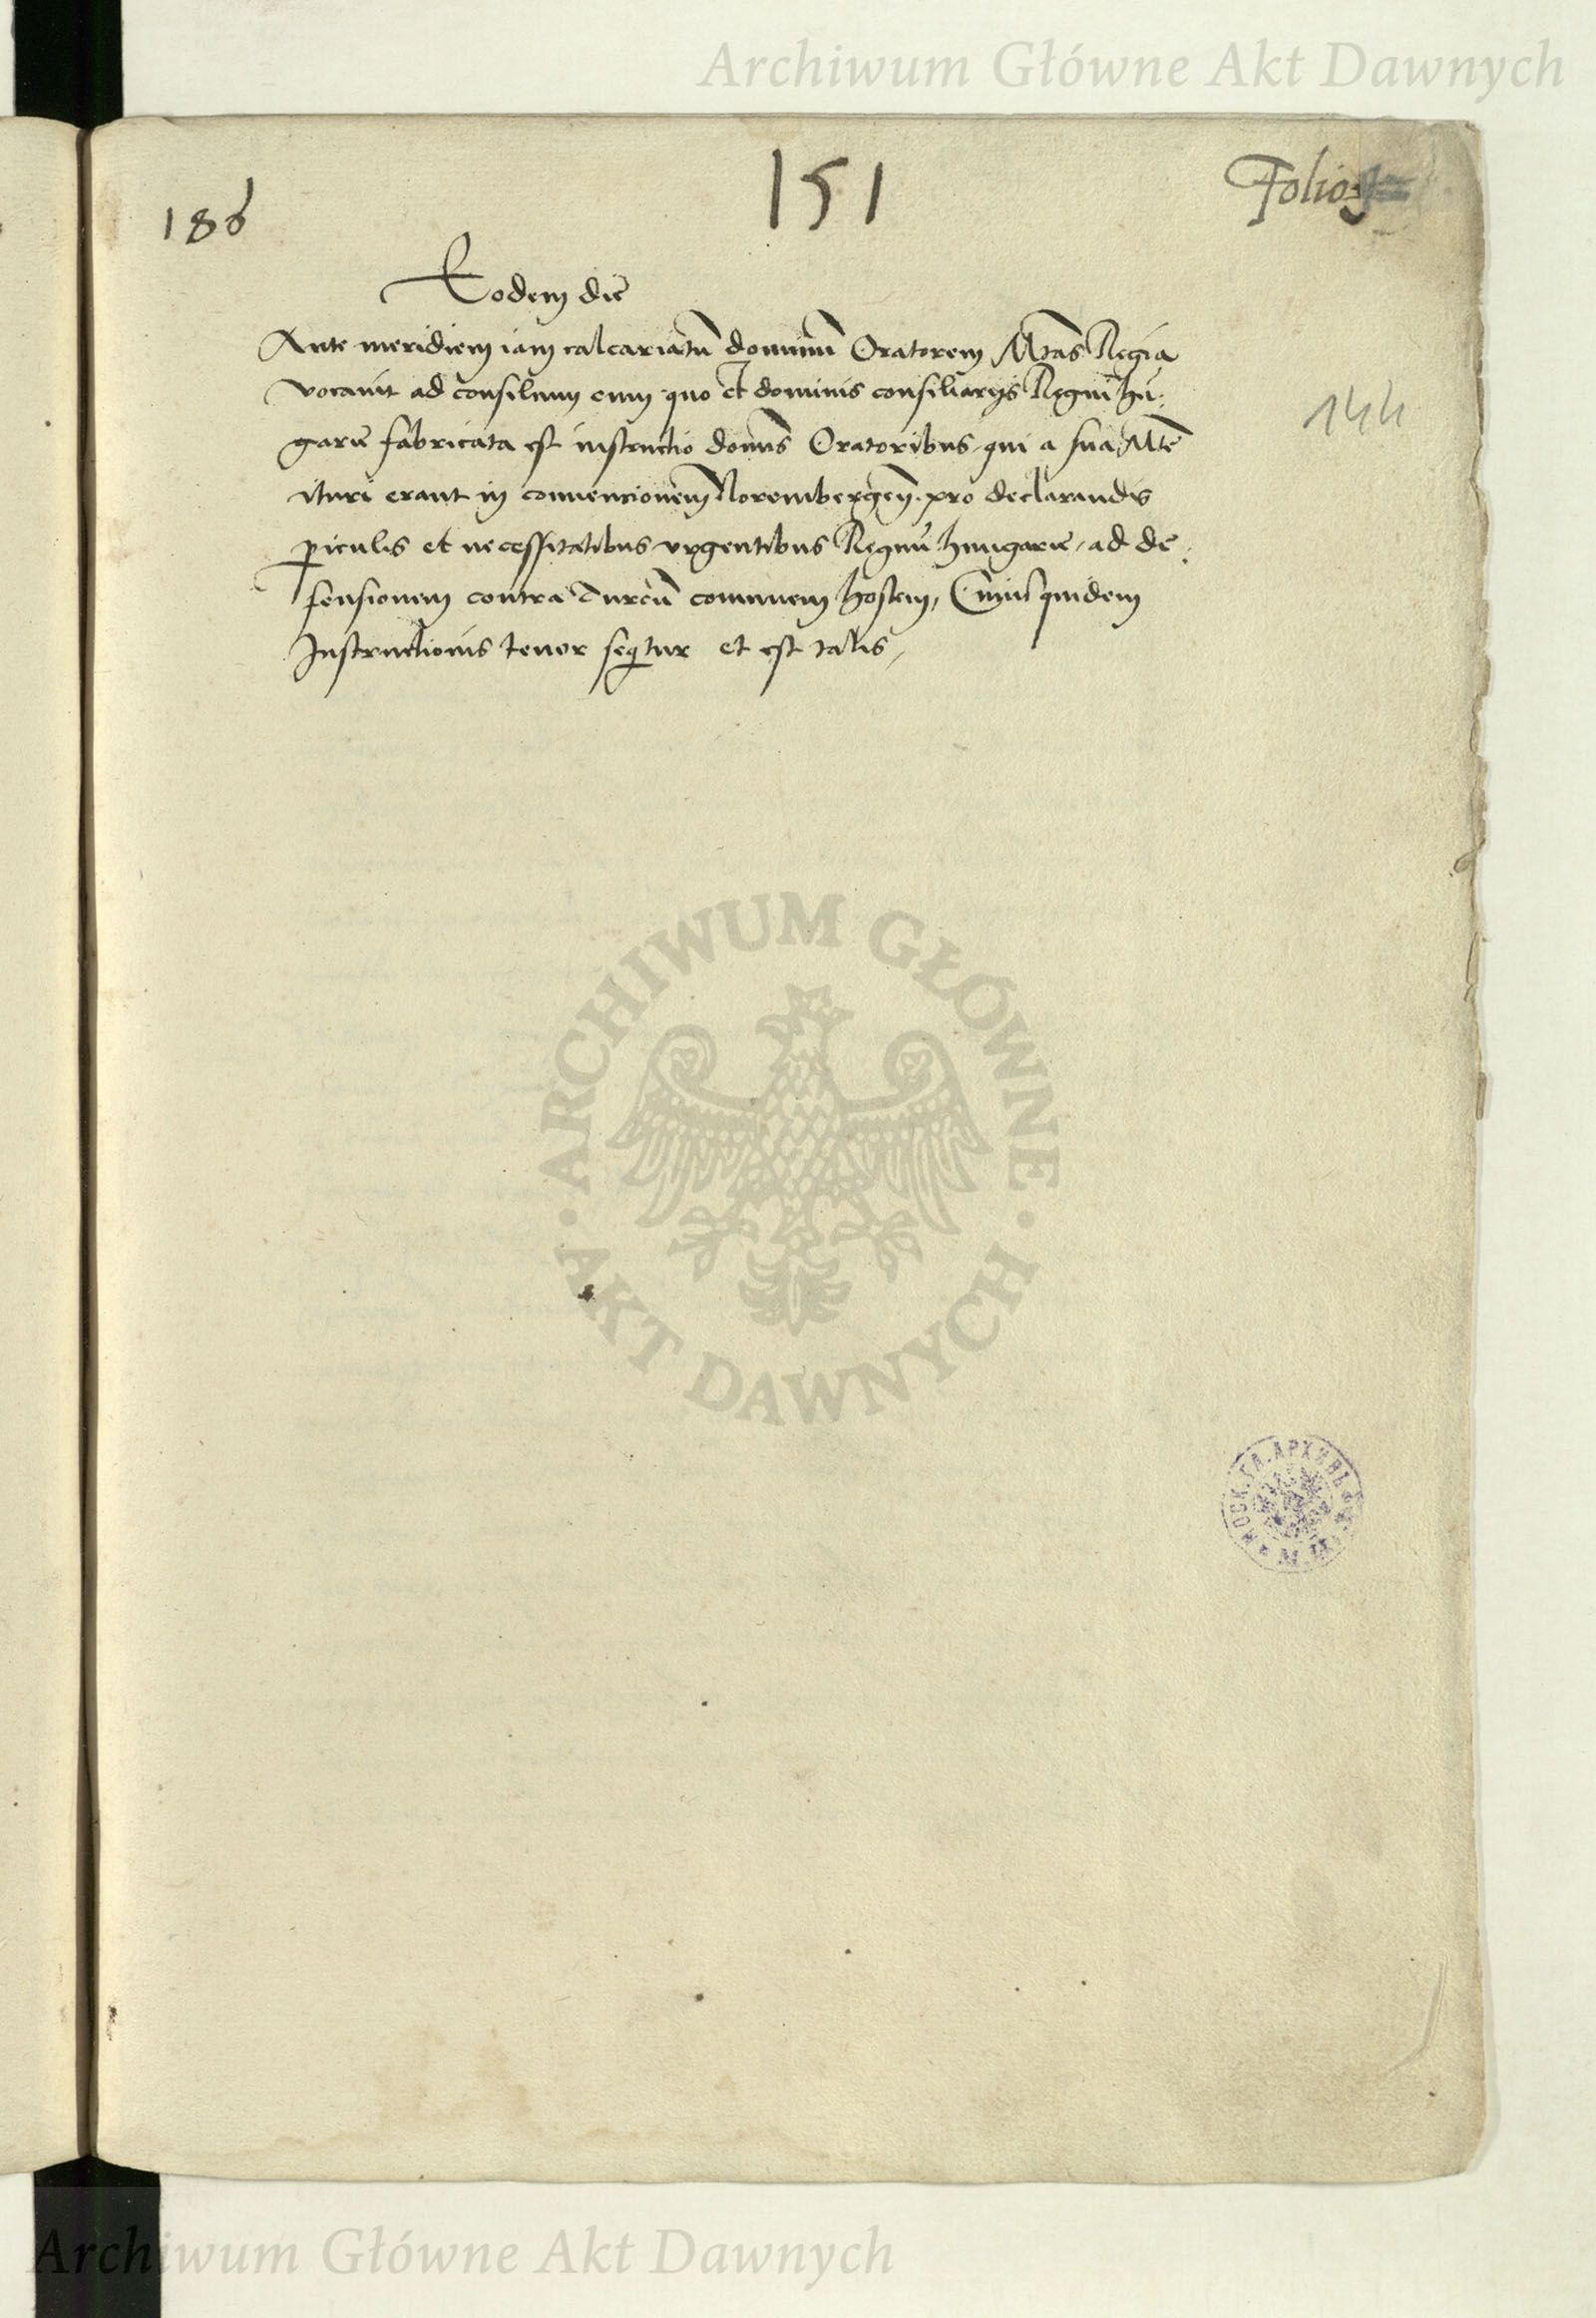 Archiwum Główne Akt Dawnych
186
151
Folio
Eodem die
Ante meridiem iam calcariatū dominū Oratorem Mtas Regia
vocavit ad consilium cum quo et dominis consiliarijs Regni hū
garie fabricata est instructio domīs Oratoribus qui a sua Mte
ituri erant in conventionem Norembergeñ. pro declarandis
periculis et necessitatibus urgentibus Regnū hungarie, ad de
fensionem contra Turcū communem hostem, Cuius quidem
Instructionis tenor sequitur et est talis,
144
ARCHIWUM GŁÓWNE AKT DAWNYCH
МОСК. ГЛ. АРХИВЪ
Archiwum Główne Akt Dawnych